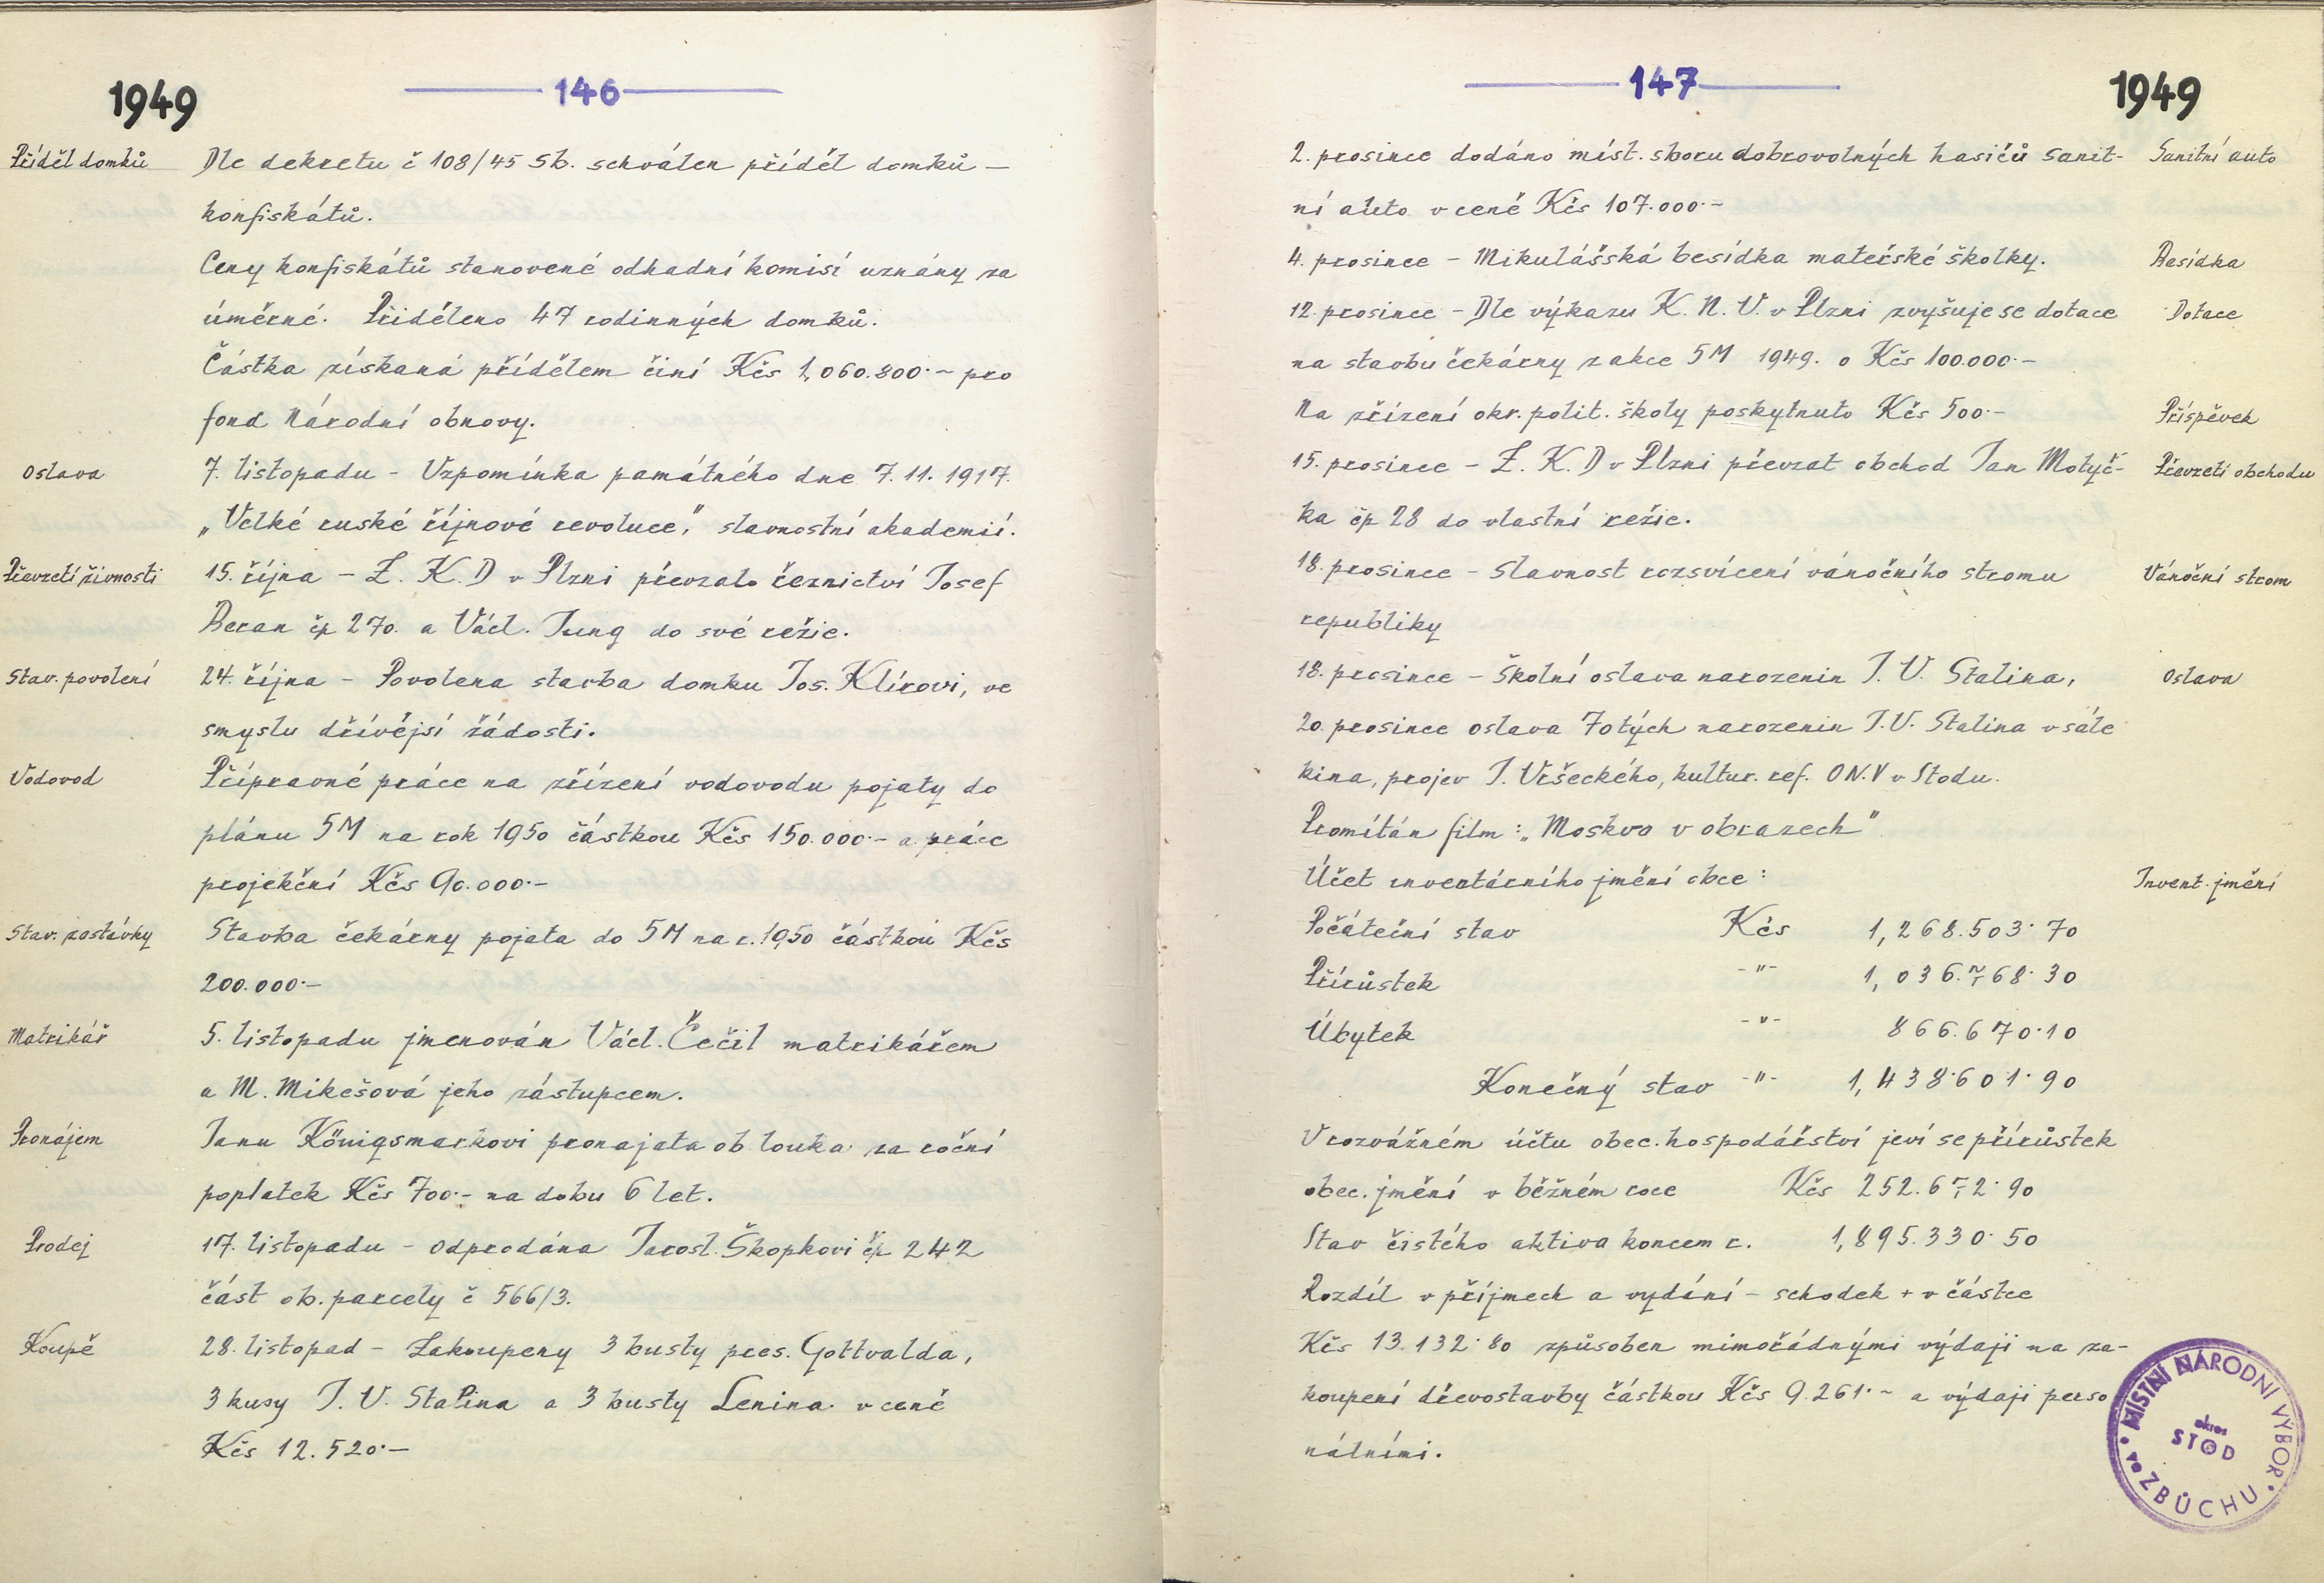 1949
146
Příděl domků
Dle dekretu č 108/45 Sb. schválen příděl domků —
konfiskátů.
Ceny konfiskátů stanovené odhadní komisí uznány za
úměrné. Přiděleno 47 rodinných domků.
Částka získaná přídělem činí Kčs 1,060.800·– pro
fond Národní obnovy.
Oslava
7. listopadu – Vzpomínka památného dne 7.11.1917.
„Velké ruské říjnové revoluce," slavnostní akademií.
Převzetí živnosti
15. října – Z. K. D v Plzni převzalo řeznictví Josef
Beran čp 270. a Václ. Jung do své režie.
Stav. povolení
24. října – Povolena stavba domku Jos. Klírovi, ve
smyslu dřívějsí žádosti.
Vodovod
Přípravné práce na zřízení vodovodu pojaty do
plánu 5M na rok 1950 částkou Kčs 150.000·– a práce
projekční Kčs 90.000·–
Stav. zastávky
Stavba čekárny pojata do 5M na r. 1950 částkou Kčs
200.000·–
Matrikář
5. listopadu jmenován Václ. Čečil matrikářem
a M. Mikešová jeho zástupcem.
Pronájem
Janu Königsmarkovi pronajata ob louka za roční
poplatek Kčs 700·– na dobu 6 let.
Prodej
17. listopadu – odprodána Jarosl. Škopkovi čp. 242
část ob. parcely č 566/3.
Koupě
28. listopad – Zakoupeny 3 busty pres. Gottvalda,
3 kusy J. V. Stalina a 3 busty Lenina v ceně
Kčs 12.520·–
147
1949
2. prosince dodáno míst. sboru dobrovolných hasičů sanit-
Sanitní auto
ní auto v ceně Kčs 107.000·–
4. prosince – Mikulášská besídka mateřské školky.
Besídka
12. prosince – Dle výkazu K. N. V. v Plzni zvyšuje se dotace
Dotace
na stavbu čekárny z akce 5M 1949. o Kčs 100.000·–
Na zřízení okr. polit. školy poskytnuto Kčs 500·–
Příspěvek
15. prosince – Z. K. D v Plzni převzat obchod Jan Motyč-
Převzetí obchodu
ka čp 28 do vlastní režie.
18. prosince – Slavnost rozsvícení vánočního stromu
Vánoční strom
republiky
18. prosince – Školní oslava narozenin J. V. Stalina,
Oslava
20. prosince oslava 70tých narozenin J. V. Stalina v sále
kina, projev J. Vršeckého, kultur. ref. ON.V v Stodu.
Promítán film: „Moskva v obrazech"
Účet inventárního jmění obce:
Invent. jmění
Počáteční stav Kčs 1,268.503·70
Přírůstek –"– 1,036.768·30
Úbytek –"– 866.670·10
Konečný stav –"– 1,438·601·90
V rozvážném účtu obec. hospodářství jeví se přírůstek
obec. jmění v běžném roce Kčs 252.672·90
Stav čistého aktiva koncem r. 1,895.330·50
Rozdíl v příjmech a vydání – schodek + v částce
Kčs 13.132·80 způsoben mimořádnými výdaji na za-
koupení dřevostavby částkou Kčs 9.261·– a výdaji perso
nálními.
MÍSTNÍ NÁRODNÍ VÝBOR
okres
STOD
ve ZBŮCHU